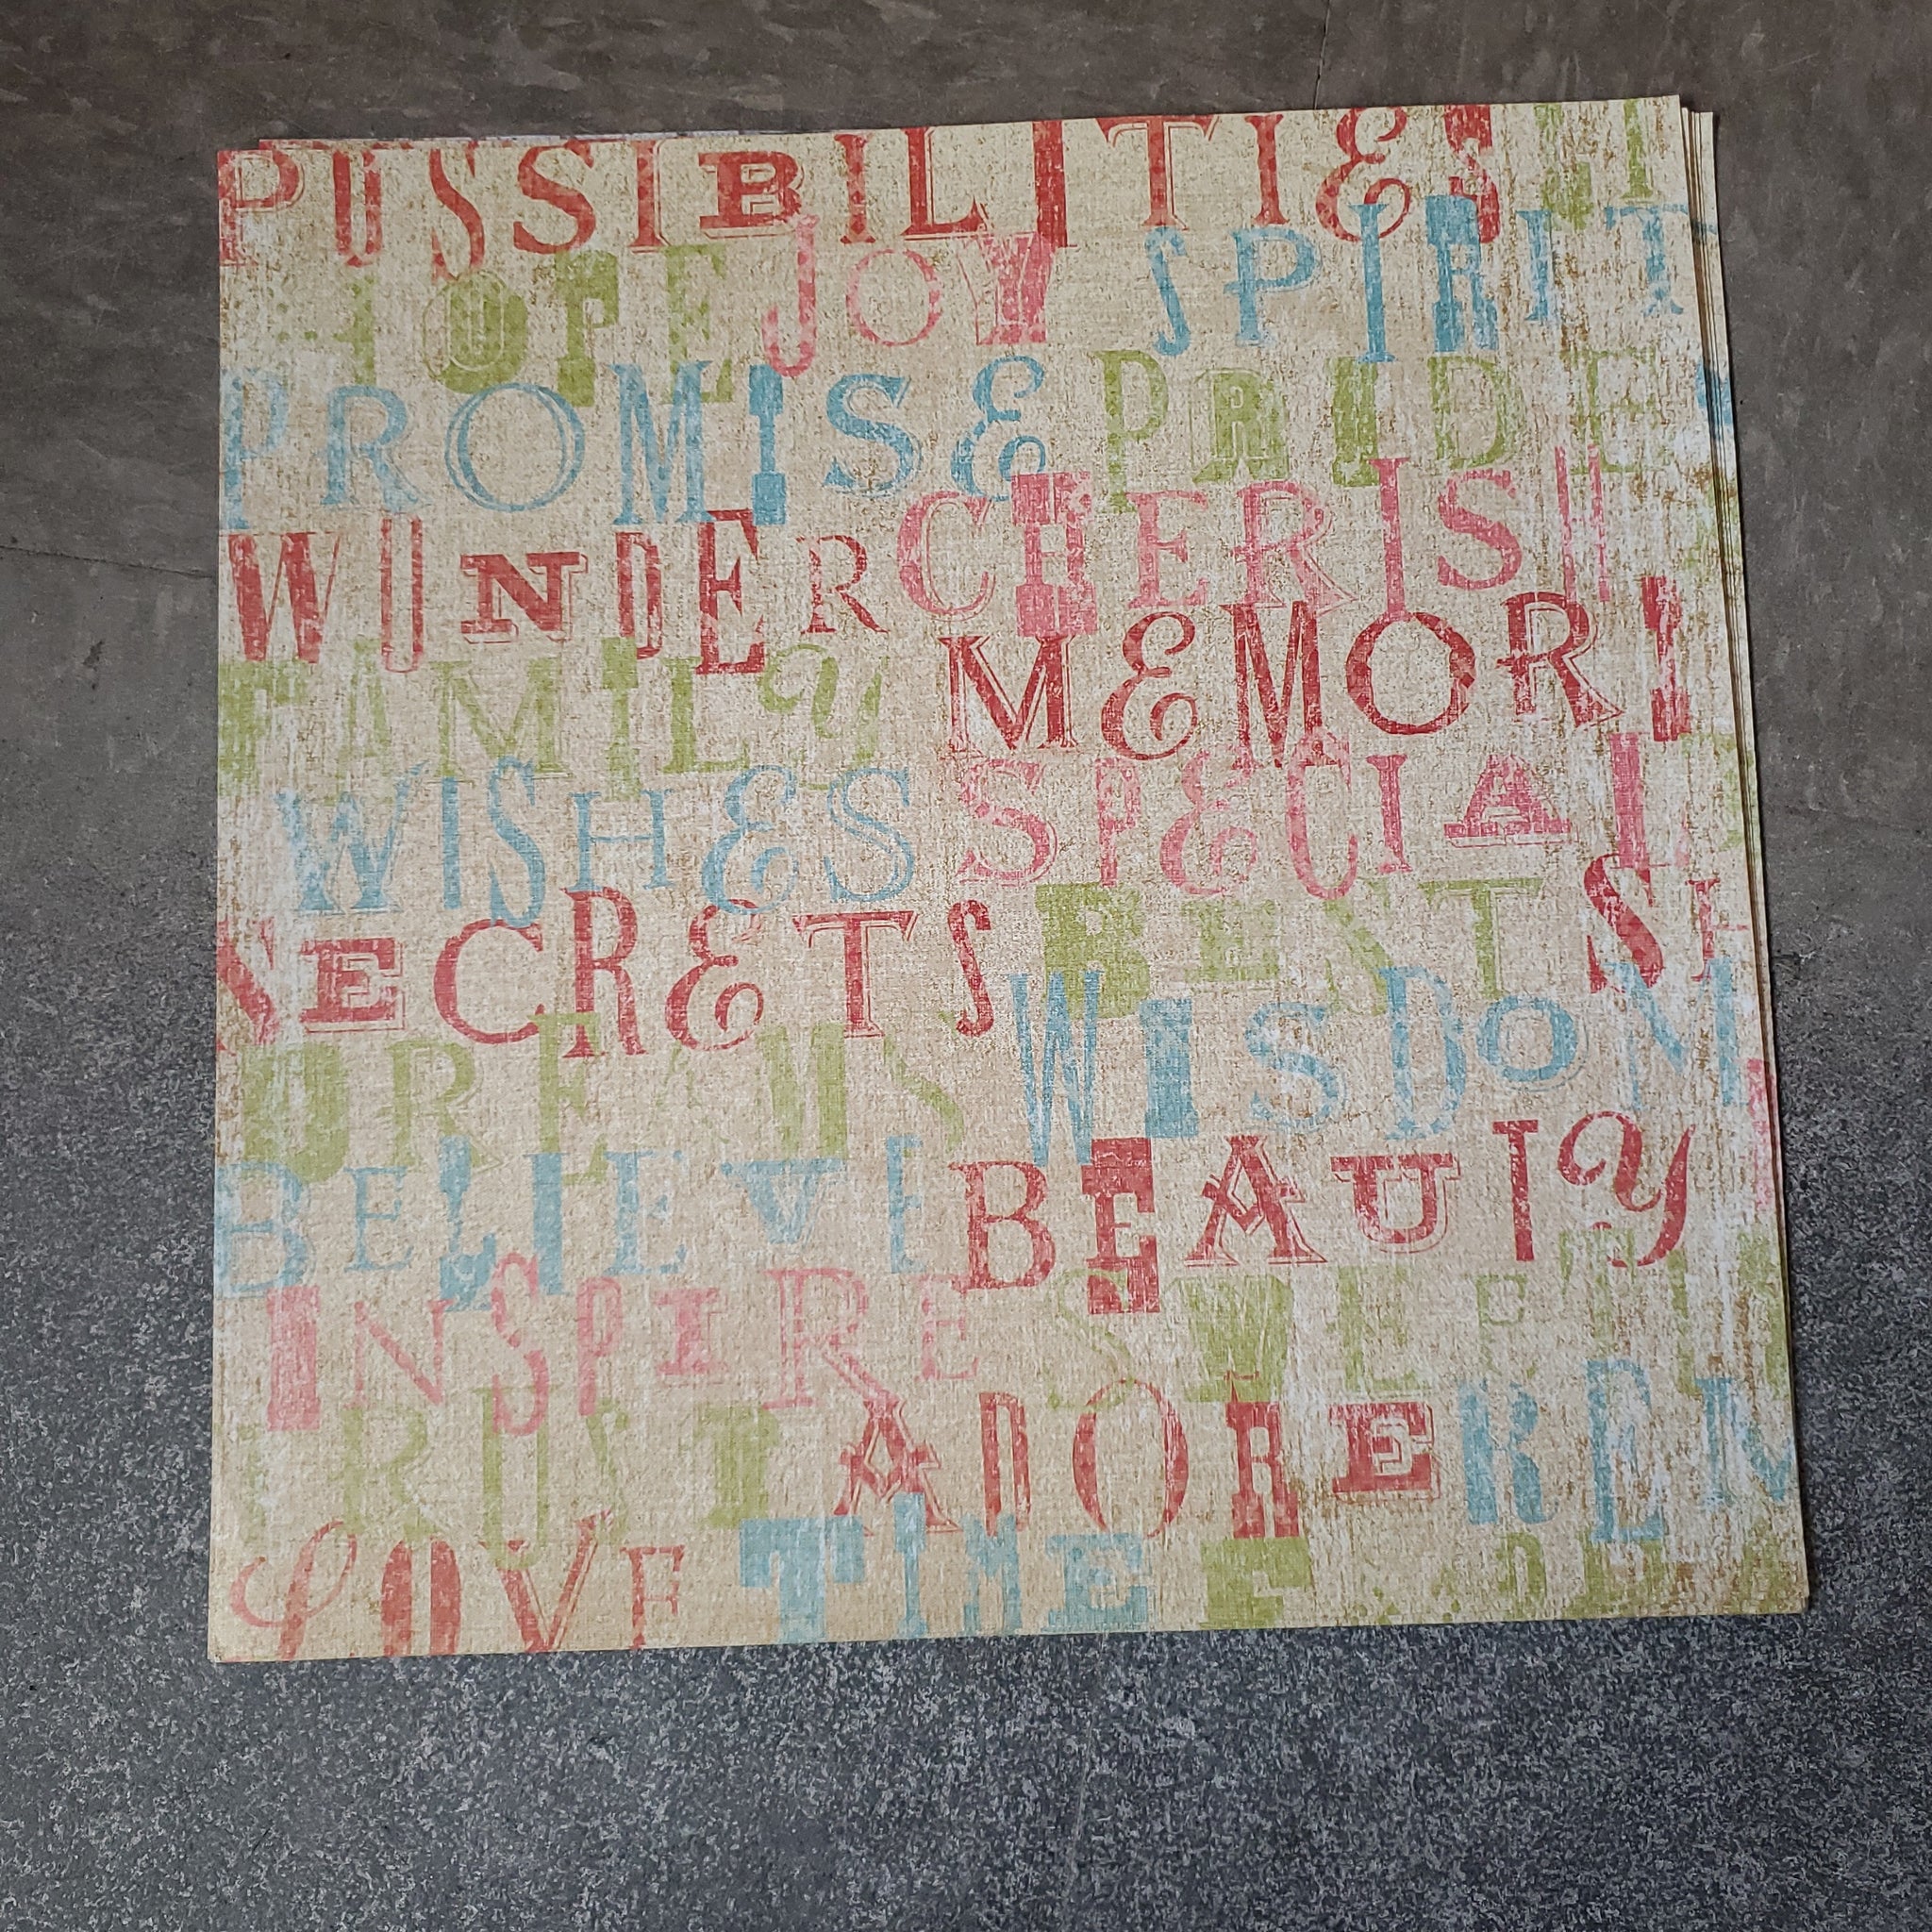 POSSIBILITIES
HOPE JOY SPIRIT
PROMISE PRIDE
WONDER CHERISH
FAMILY MEMORI
WISHES SPECIAL
SECRETS BEST
DREAMS WISDOM
BELIEVE BEAUTY
INSPIRE SWEET
TRUST ADORE REM
LOVE TIME